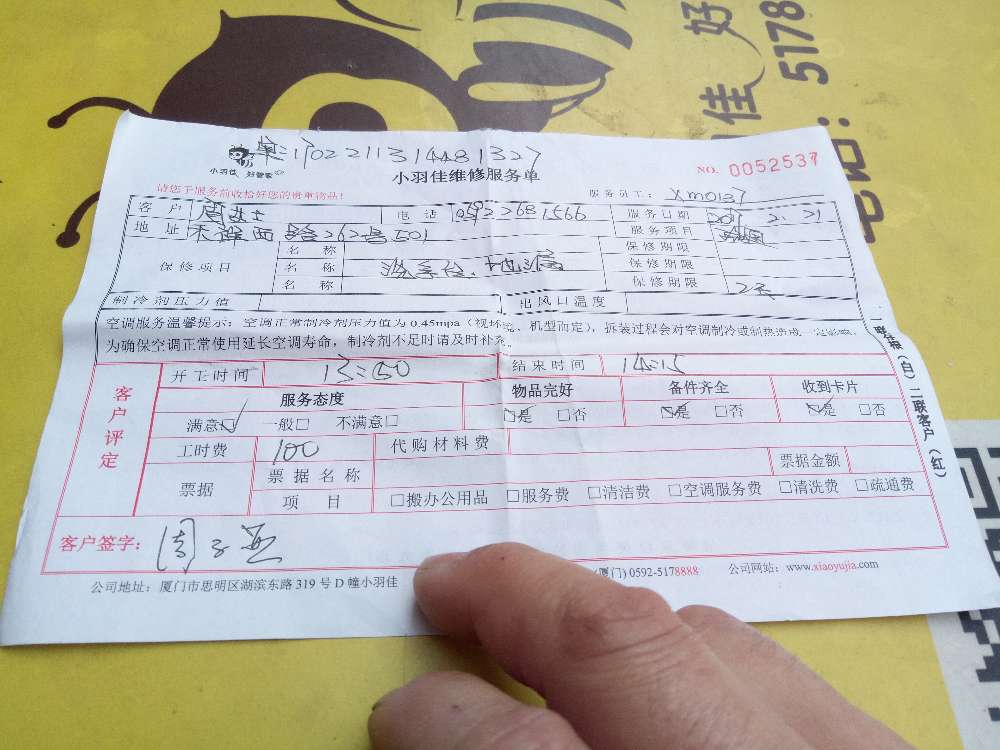 好
佳
5178
单:1702211314481327
小羽佳 好管家
小羽佳维修服务单
NO. 0052537
请您于服务前收拾好您的贵重物品!
服务员工: Xm0137
客户 周女士 电话 05922681566 服务日期 2.21
地址 西路262号501 服务项目
保修项目 名称 保修期限
名称 地漏 保修期限
名称 保修期限 2天
制冷剂压力值 出风口温度
空调服务温馨提示:空调正常制冷剂压力值为 0.45mpa(视环境、机型而定),拆装过程会对空调制冷或制热造成一定影响,
为确保空调正常使用延长空调寿命,制冷剂不足时请及时补充。
开工时间 13:50 结束时间 14:15
客户评定
服务态度 物品完好 备件齐全 收到卡片
满意☑ 一般□ 不满意□ ☑是 □否 ☑是 □否 ☑是 □否
工时费 100 代购材料费
票据 票据名称 票据金额
项目 □搬办公用品 □服务费 □清洁费 □空调服务费 □清洗费 □疏通费
客户签字:
公司地址:厦门市思明区湖滨东路 319 号 D 幢小羽佳 (厦门) 0592-5178888 公司网站:www.xiaoyujia.com
(白) 二联客户 (红)